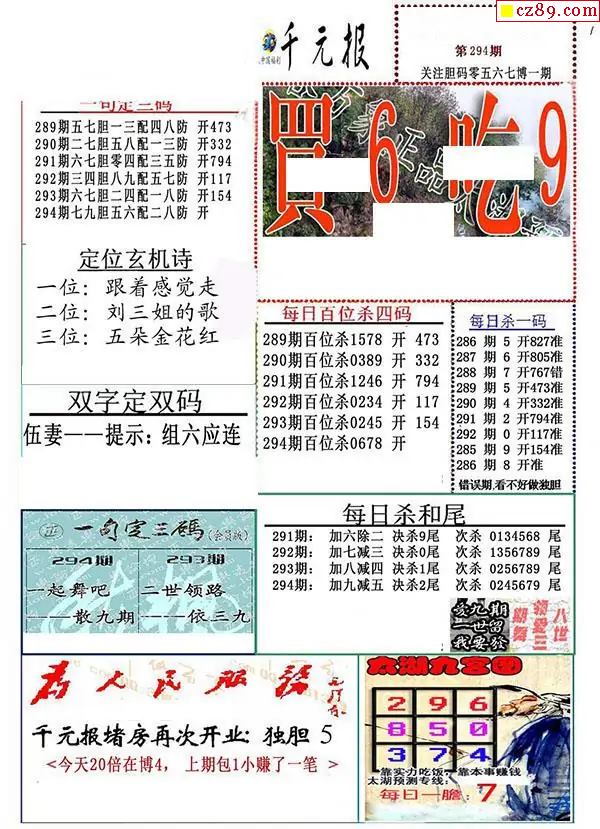 cz89.com
千元报
第294期
关注胆码零五六七博一期
一句定三码
289期五七胆一三配四八防 开473
290期二七胆五八配一三防 开332
291期六七胆零四配三五防 开794
292期三四胆八九配五七防 开117
293期六七胆二四配一八防 开154
294期七九胆五六配二八防 开
買6吃9
定位玄机诗
一位：跟着感觉走
二位：刘三姐的歌
三位：五朵金花红
每日百位杀四码
289期百位杀1578 开 473
290期百位杀0389 开 332
291期百位杀1246 开 794
292期百位杀0234 开 117
293期百位杀0245 开 154
294期百位杀0678 开
每日杀一码
286 期 5 开827准
287 期 6 开805准
288 期 7 开767错
289 期 5 开473准
290 期 4 开332准
291 期 2 开794准
292 期 0 开117准
285 期 9 开154准
286 期 8 开准
错误期,看不好做独胆
双字定双码
伍妻——提示：组六应连
一句定三碼(会员版)
294期 293期
一起舞吧 二世领路
——散九期 ——依三九
每日杀和尾
291期： 加六除二 决杀9尾 次杀 0134568 尾
292期： 加七减三 决杀0尾 次杀 1356789 尾
293期： 加八减四 决杀1尾 次杀 0256789 尾
294期： 加九减五 决杀2尾 次杀 0245679 尾
玄九期
二世留
我要發
为人民服务
千元报堵房再次开业：独胆 5
<今天20倍在博4， 上期包1小赚了一笔 >
太湖九宫图
2 9 6
8 5 0
3 7 4
靠实力吃饭，靠本事赚钱
太湖预测专线:
每日一胆：7